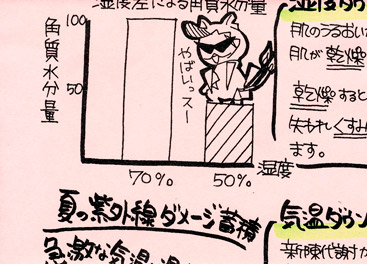 湿度差による角質水分量
100
角質水分量
50
やばいっスー
湿度
70%
50%
夏の紫外線ダメージ蓄積
急激な気温
湿度ダウ
肌のうるおい
肌が乾燥
乾燥すると
失われくすみ
ます。
気温ダウン
新陳代謝が